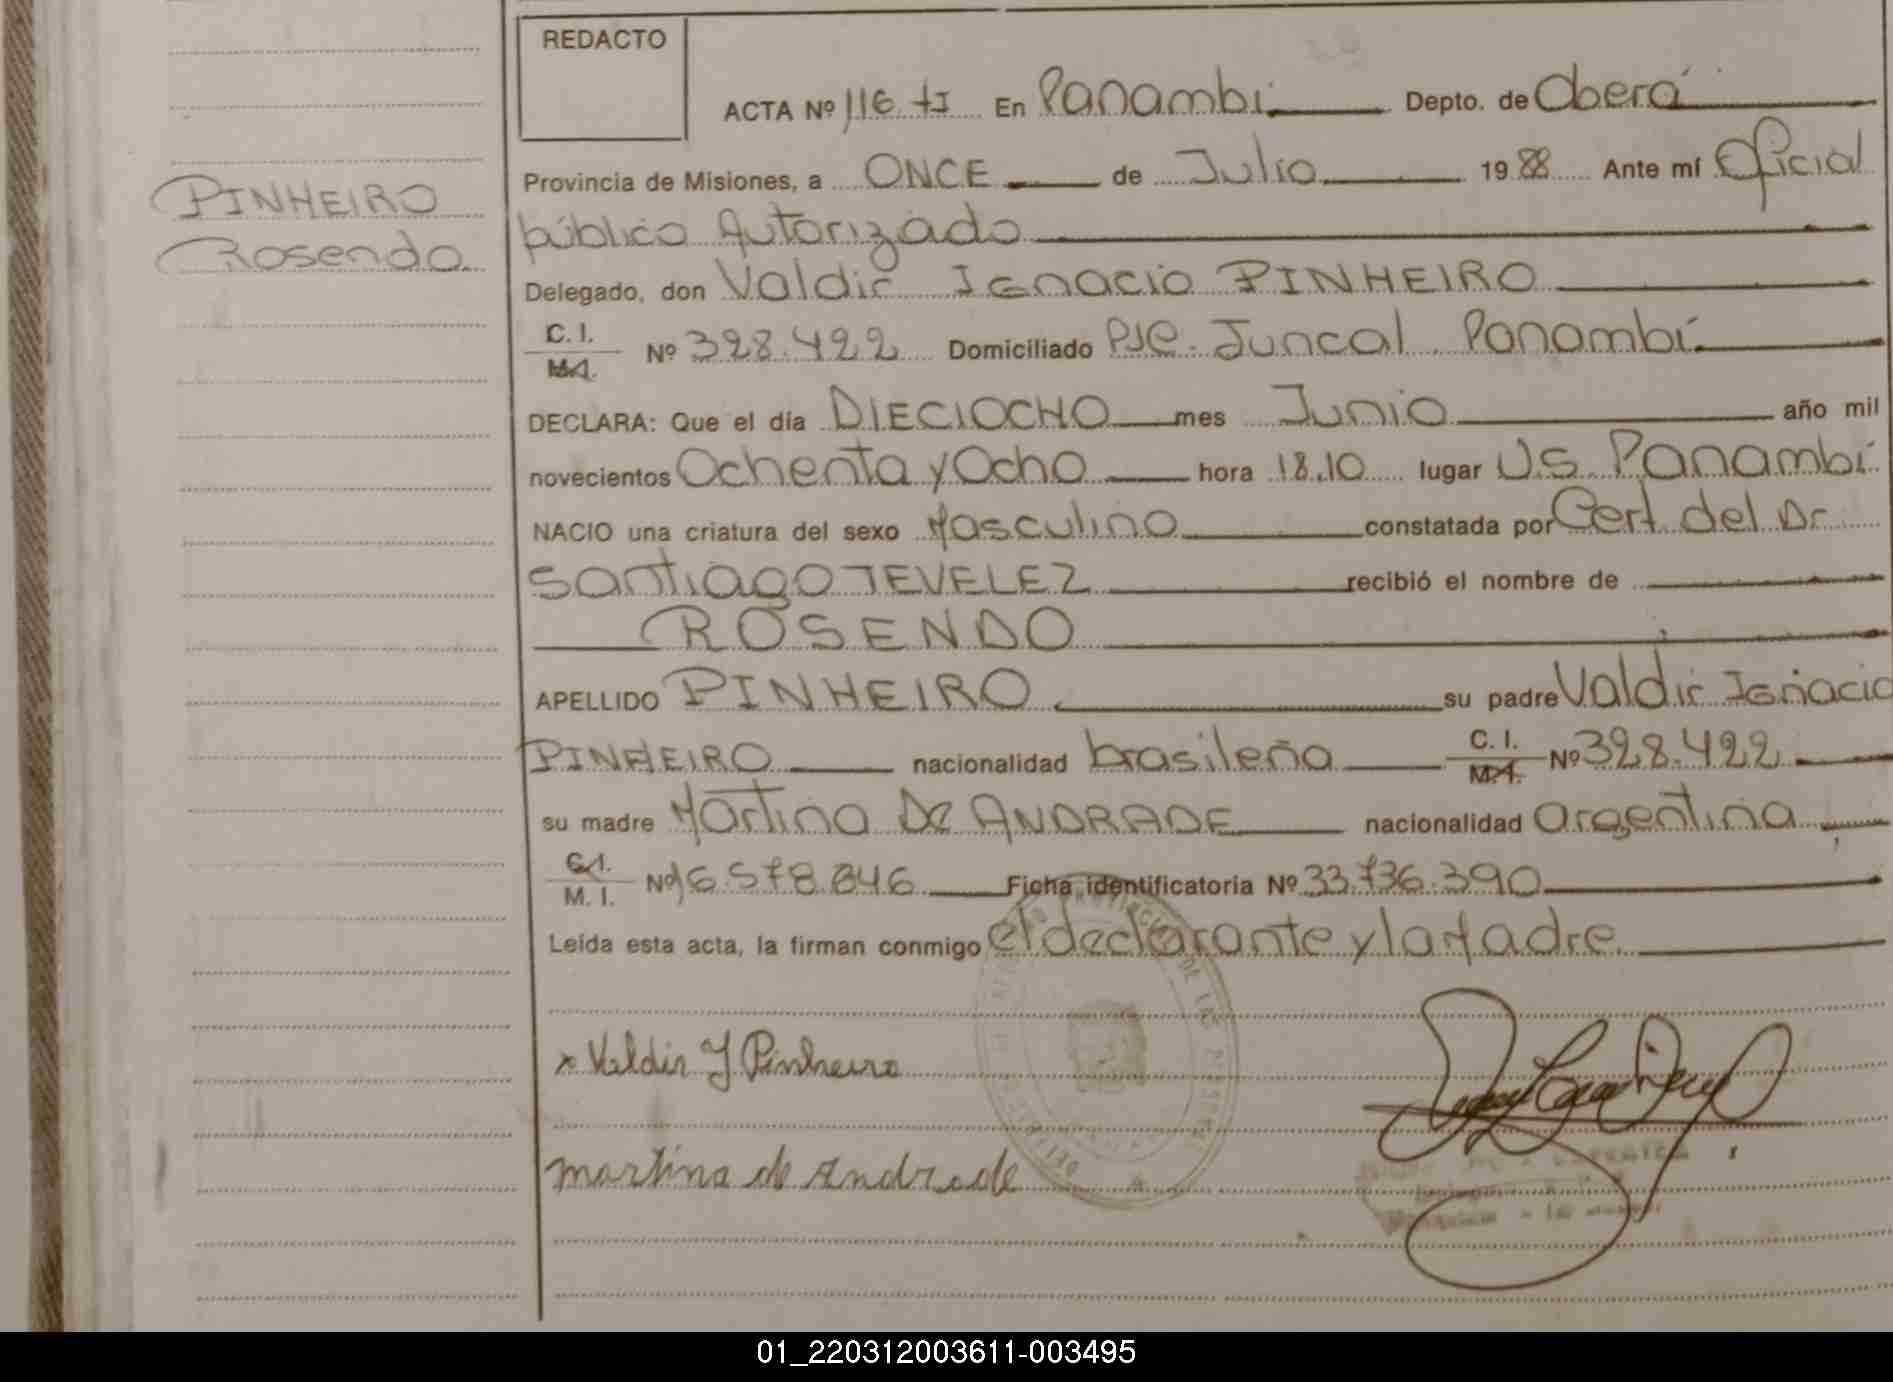 REDACTO
ACTA Nº 116 tI En Panambí Depto. de Oberá
Provincia de Misiones, a ONCE de Julio 1988 Ante mí Oficial
público Autorizado
PINHEIRO
Rosendo
Delegado, don Valdir Ignacio PINHEIRO
C. I.
M.I. Nº 328.422 Domiciliado Pje. Juncal Panambí
DECLARA: Que el día DIECIOCHO mes Junio año mil
novecientos Ochenta y Ocho hora 18.10 lugar U.S. Panambí
NACIO una criatura del sexo Masculino constatada por Cert del Dr
Santiago TEVELEZ recibió el nombre de
ROSENDO
APELLIDO PINHEIRO su padre Valdir Ignacio
PINHEIRO nacionalidad brasileña C. I.
M.I. Nº 328.422
su madre Martina De ANDRADE nacionalidad argentina
C.I.
M. I. Nº 16.578.846 Ficha identificatoria Nº 33.736.390
Leída esta acta, la firman conmigo el declarante y la Madre.
x Valdir I Pinheiro
martina de Andrade
01_220312003611-003495